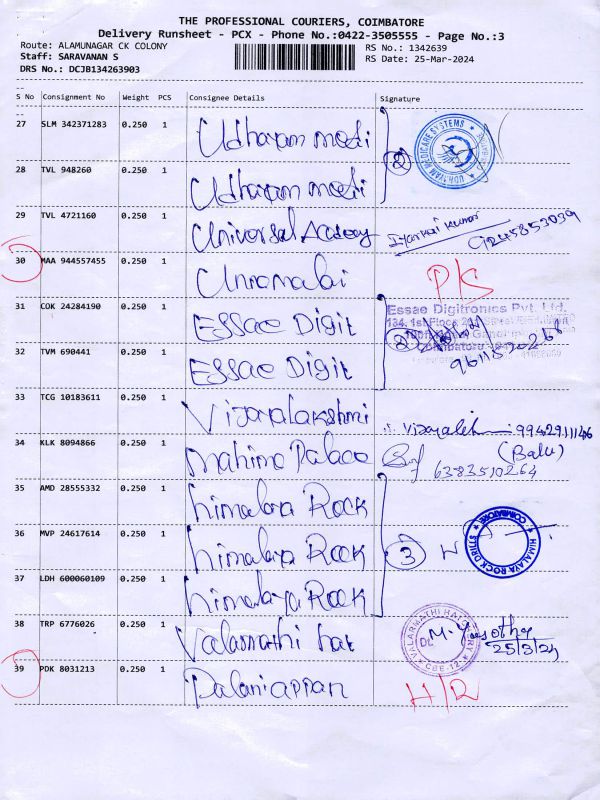 THE PROFESSIONAL COURIERS, COIMBATORE
Delivery Runsheet - PCX - Phone No.:0422-3505555 - Page No.:3
Route: ALAMUNAGAR CK COLONY
Staff: SARAVANAN S
DRS No.: DCJB134263903
RS No.: 1342639
RS Date: 25-Mar-2024
S No Consignment No Weight PCS Consignee Details Signature
27 SLM 342371283 0.250 1 Udhayam medi
28 TVL 948260 0.250 1 Udhayam medi
2
UDHAYAM MEDICARE SYSTEMS
29 TVL 4721160 0.250 1 Universal Academy
30 MAA 944557455 0.250 1 Unnamalai
31 COK 24284190 0.250 1 ESSae Digit
32 TVM 690441 0.250 1 ESSae Digit
2
Essae Digitronics Pvt. Ltd.
33 TCG 10183611 0.250 1 Vijayalakshmi
34 KLK 8094866 0.250 1 Mahima Palace
(Balu)
6383510264
35 AMD 28555332 0.250 1 himalaya Rock
36 MVP 24617614 0.250 1 himalaya Rock
37 LDH 600060109 0.250 1 himalaya Rock
3
HIMALAYA ROCK DRILLS
COIMBATORE
38 TRP 6776026 0.250 1 Valarmathi hat
VALARMATHI HATCHERY
CBE-12
25/3/24
39 PDK 8031213 0.250 1 Palaniappan